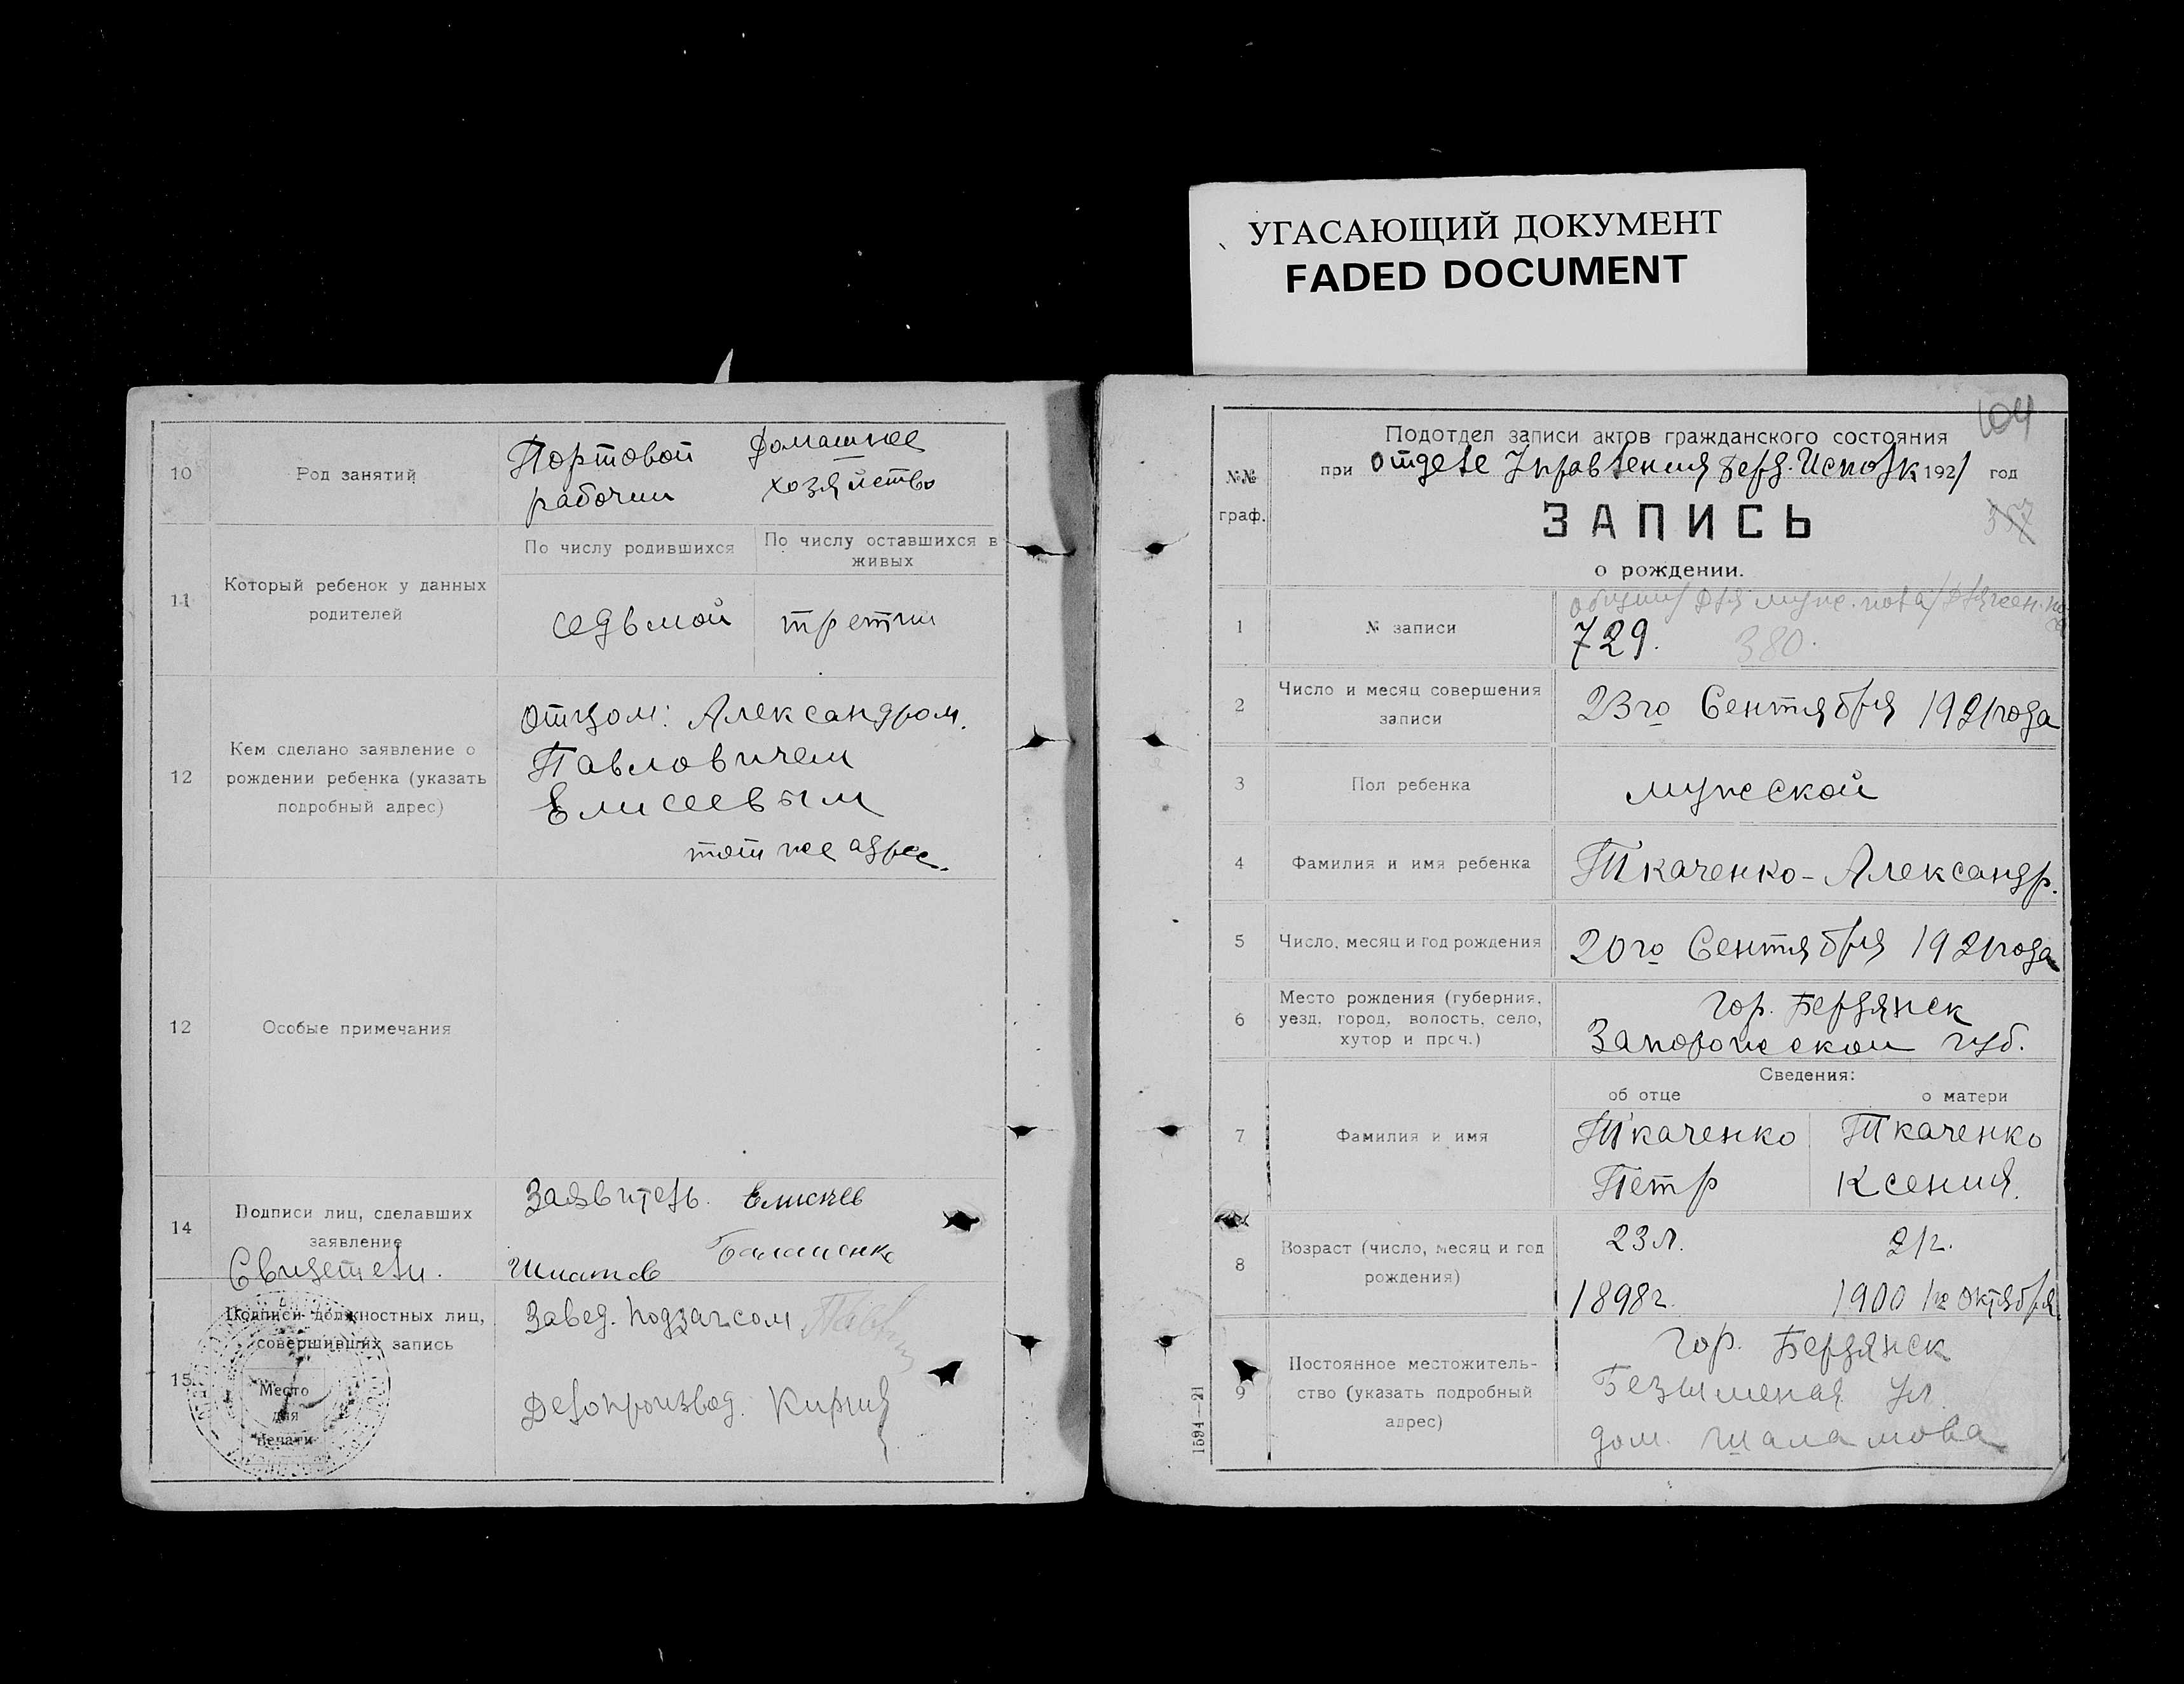 УГАСАЮЩИЙ ДОКУМЕНТ
FADED DOCUMENT
10
Род занятий
Портовой
рабочии
Домашнее
хозяйство
11
Который ребенок у данных
родителей
По числу родившихся
По числу оставшихся в
живых
седьмой
третии
12
Кем сделано заявление о
рождении ребенка (указать
подробный адрес)
отцом: Александром.
Павловичем
Елисеевым
тот же адрес.
12
Особые примечания
14
Подписи лиц, сделавших
заявление
Свидетели.
Заявитель. Елисеев
Шматов
15
Подписи должностных лиц,
совершивших запись
Место
для
печати
Завед. подзагсом
Делопроизвод.
104
№№
граф.
Подотдел записи актов гражданского состояния
при отделе Управления Берд. Исполк 1921 год
ЗАПИСЬ
357
о рождении.
1
№ записи
общии/ для муж. пола/ для жен. по
ла
729. 380.
2
Число и месяц совершения
записи
23го Сентября 1921 года
3
Пол ребенка
мужеской
4
Фамилия и имя ребенка
Ткаченко-Александр.
5
Число, месяц и год рождения
20го Сентября 1921 года
6
Место рождения (губерния,
уезд, город, волость, село,
хутор и проч.)
гор. Бердянск
Запорожскои губ.
Сведения:
об отце
о матери
7
Фамилия и имя
Ткаченко
Петр
Ткаченко
Ксения.
8
Возраст (число, месяц и год
рождения)
23 л.
1898 г.
21 г.
1900 1го октября
9
Постоянное местожитель-
ство (указать подробный
адрес)
гор. Бердянск
Безименая ул.
дом. Шаламова
1594—21